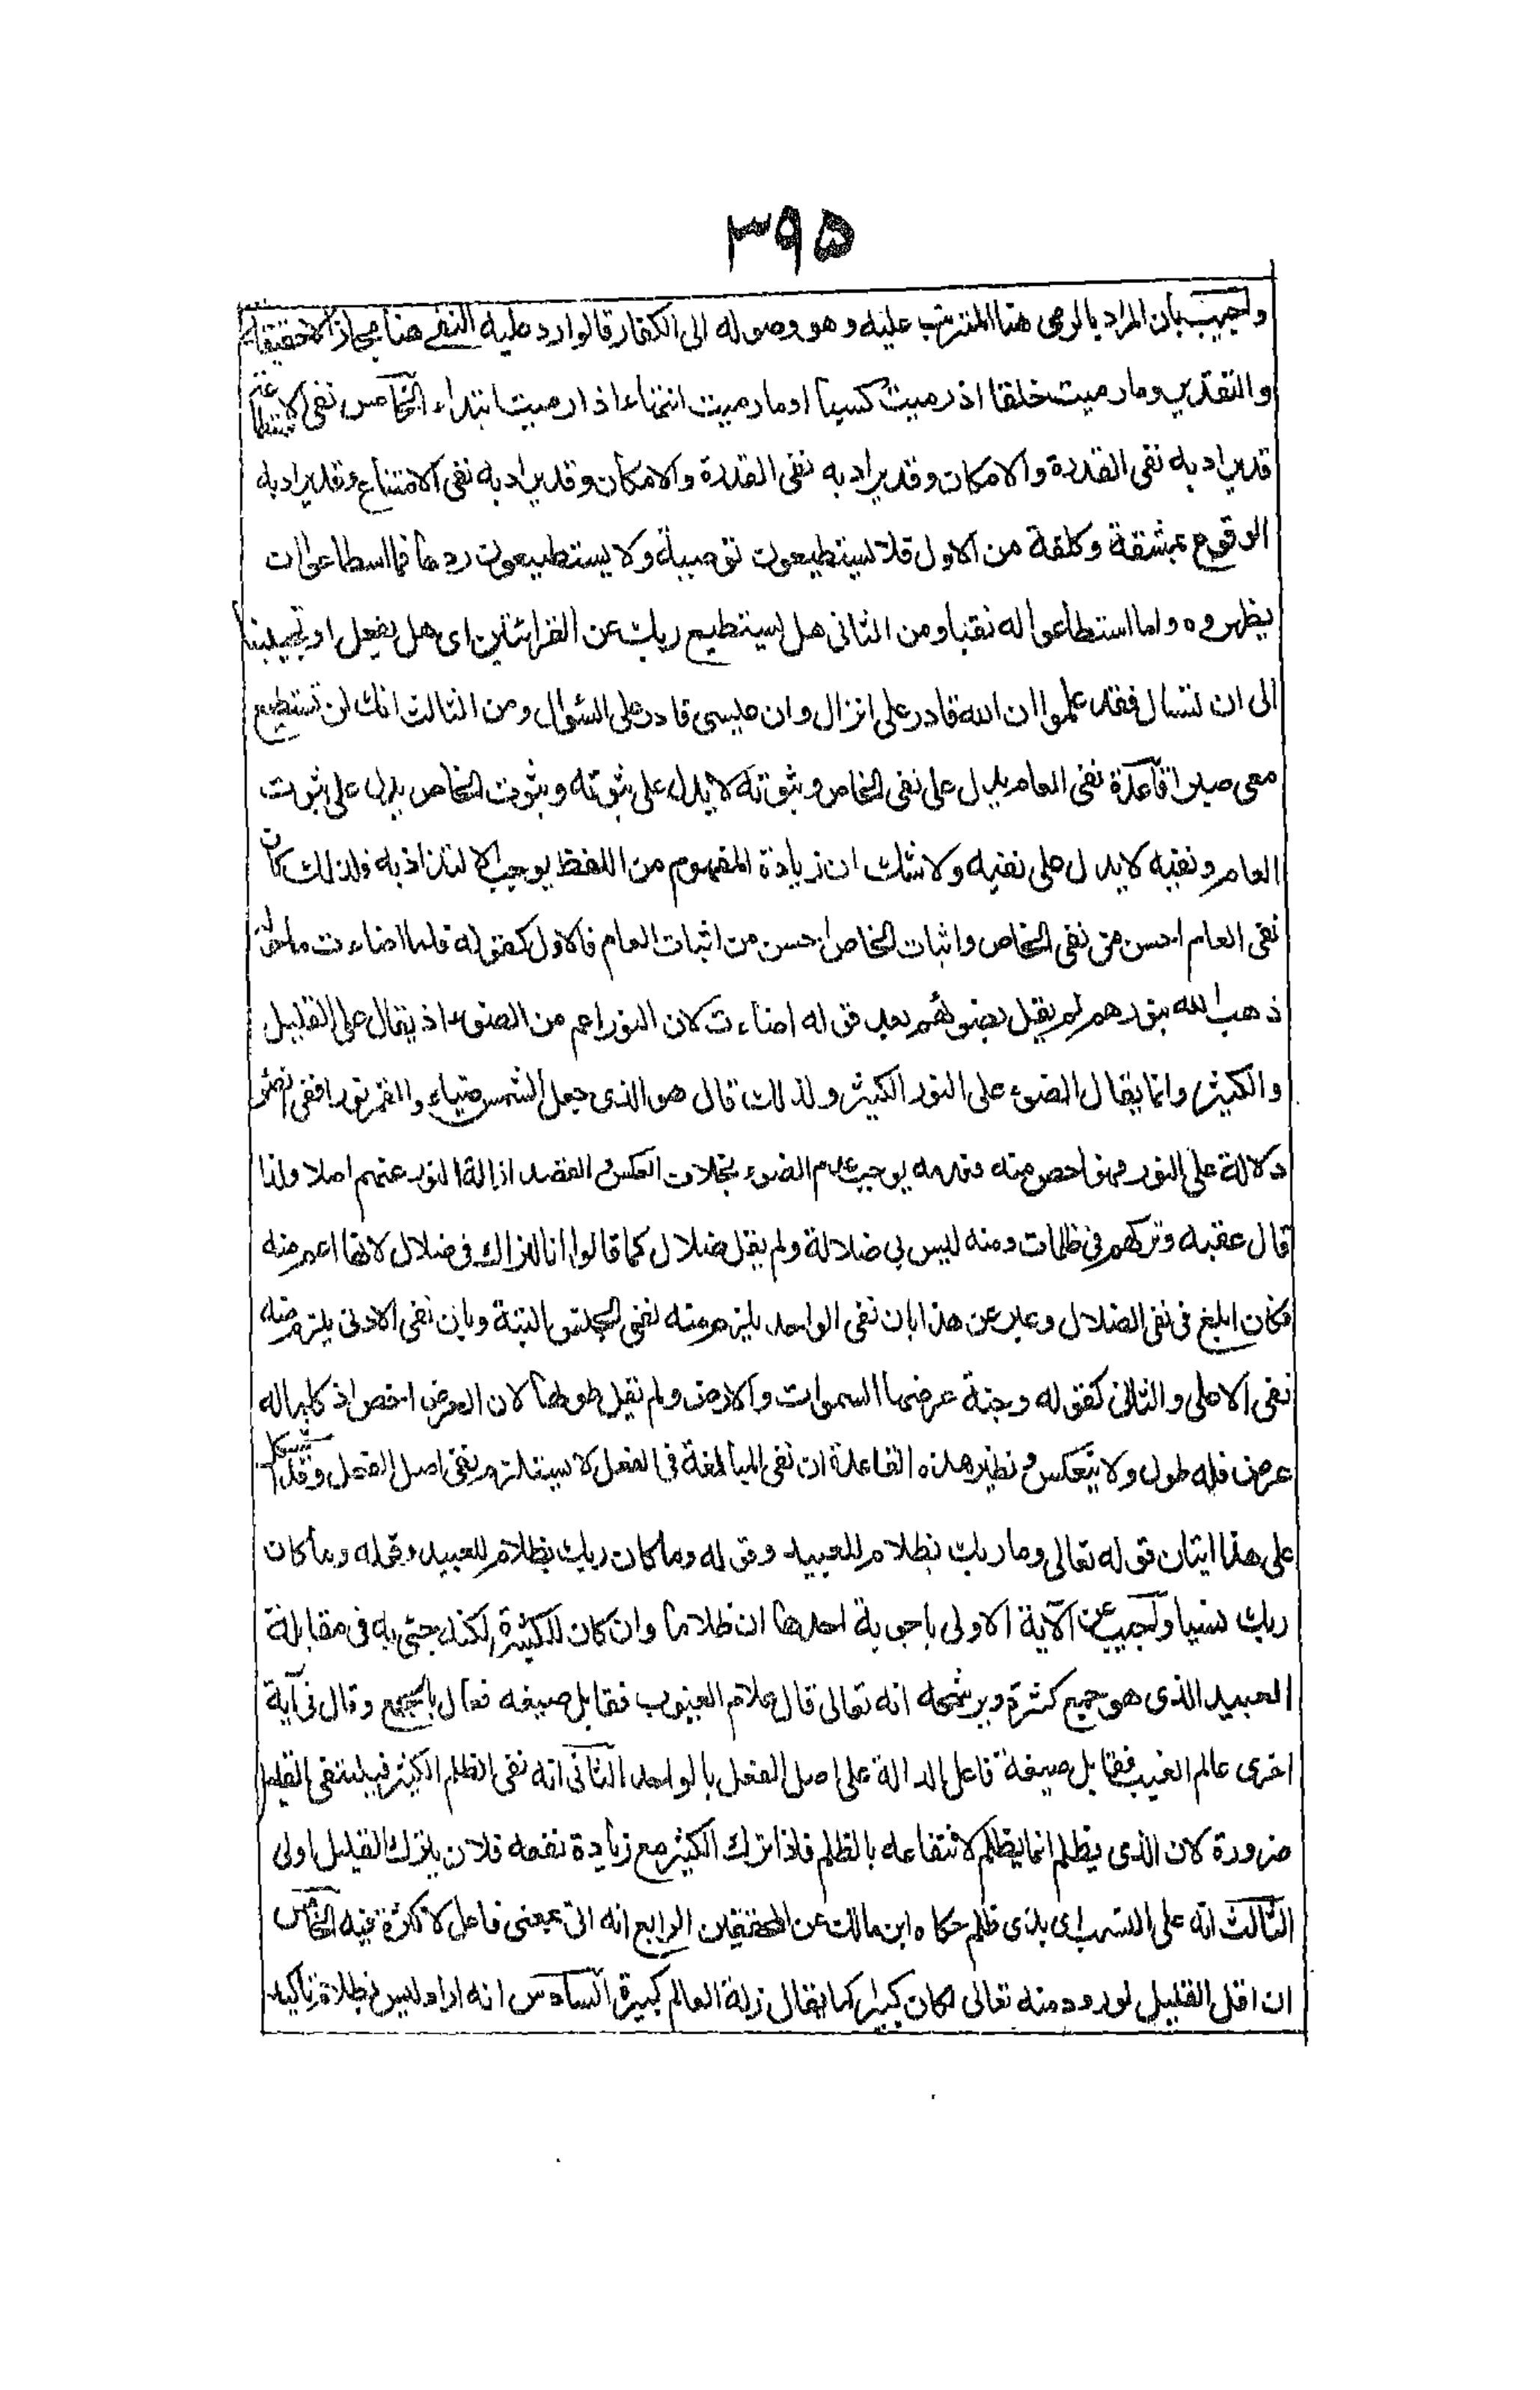 ۳۹۵
واجيب بان المراد بالرمى هنا المترتب عليه وهو وصوله الى الكفار قالوارد عليه النفى هنا مجاز لا حقيقة
والتقدير وما رميت خلقا اذ رميت كسبا او ما رميت انتهاء اذ رميت ابتداء الخامس نفى الاستطاعة
قد يراد به نفى القدرة والامكان وقد يراد به نفى القدرة والامكان وقد يراد به نفى الامتناع وقد يراد به
الوقوع بمشقة وكلفة من الاول فلا يستطيعون توصية ولا يستطيعون ردها فما اسطاعوا ان
يظهروه وما استطاعوا له نقبا ومن الثانى هل يستطيع ربك عن القرائتين اى هل يفعل او تجيبنا
الى ان تسال فقد علموا ان الله قادر على انزال وان عيسى قادر على السوال ومن الثالث انك لن تستطيع
معى صبرا قاعدة نفى العام يدل على نفى الخاص وثبوته لا يدل على ثبوته وثبوت الخاص يدل على ثبوت
العام ونفيه لا يدل على نفيه ولا شك ان زيادة المفهوم من اللفظ يوجب الالتذاذ به فلذلك كان
نفى العام احسن من نفى الخاص واثبات الخاص احسن من اثبات العام فالاول كقوله فلما اضاءت ما حوله
ذهب الله بنورهم لم يقل بضوئهم بعد قوله اضاءت لان النور اعم من الضوء اذ يقال على القليل
والكثير وانما يقال الضوء على النور الكثير ولذلك قال هو الذى جعل الشمس ضياء والقمر نورا ففى الضوء
دلالة على النور فهو اخص منه فعدمه يوجب عدم الضوء بخلاف العكس والقصد ازالة النور عنهم اصلا ولذا
قال عقبه وتركهم فى ظلمات ومنه ليس بى ضلالة ولم يقل ضلال كما قالوا انا لنراك فى ضلال لانها اعم منه
فكان ابلغ فى نفى الضلال وعبر عن هذا بان نفى الواحد يلزم منه نفى الجنس البتة وبان نفى الادنى يلزم منه
نفى الاعلى والثانى كقوله وجنة عرضها السموات والارض ولم يقل طولها لان العرض اخص اذ كل ما له
عرض فله طول ولا ينعكس ونظير هذه القاعدة ان نفى المبالغة فى الفعل لا يستلزم نفى اصل الفعل وقد اشكل
على هذا ايتان قوله تعالى وما ربك بظلام للعبيد وقوله وما كان ربك بظلام للعبيد وقوله وما كان
ربك نسيا واجيب عن الآية الاولى باجوبة احدها ان ظلاما وان كان للكثرة لكنه جئ به فى مقابلة
العبيد الذى هو جمع كثرة ويرشحه انه تعالى قال علام الغيوب فقابل صيغه فعال بالجمع وقال فى آية
اخرى عالم الغيب فقابل صيغة فاعل الدالة على اصل الفعل بالواحد الثانى انه نفى الظلم الكثير فينتفى القليل
ضرورة لان الذى يظلم انما يظلم لانتفاعه بالظلم فاذا ترك الكثير مع زيادة نفعه فلان يترك القليل اولى
الثالث انه على النسب اى بذى ظلم حكاه ابن مالك عن المحققين الرابع انه اتى بمعنى فاعل لا كثرة فيه الخامس
ان اقل القليل لو ورد منه تعالى لكان كبيرا كما يقال زلة العالم كبيرة السادس انه اراد ليس بظلام تاكيد